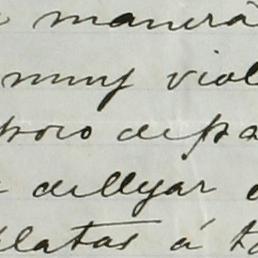 manera
muy viol
poco depa
de llegar
platas á to